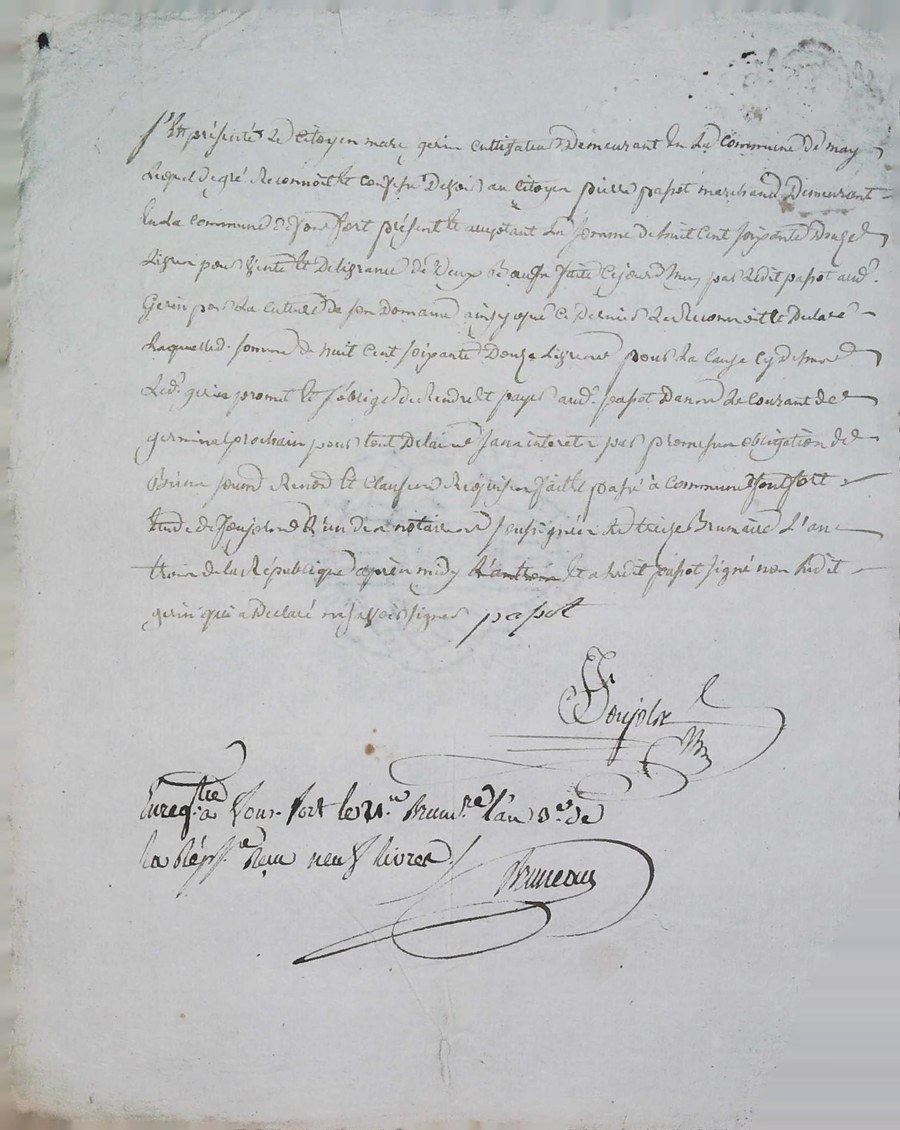 S'Est présenté Le Citoyen marc gerin cultivateur Demeurant En La Commune De may
Lequel de gré Reconnoit Et Confesse Devoir au Citoyen pierre papot marchand Demeurant
En La commune De fonfort présent Et acceptant La somme de huit Cent soixante Douze
Livres pour Vente Et Delivrance de Deux Bœufs faite Cejourd'huy par Ledit papot aud.
Gerin pour La culture de son Domaine ainsy que Ce Dernier Le Reconnoit Et Declare
Laquelled. somme de huit Cent soixante Douze Livres pour La Cause Cy Dessus
Led. gerin promet Et s'oblige de Rendre Et payer aud. papot Dans Le Courant de
germinal prochain pour tout Delai Sans interets par promesse obligation de
Biens soumd. Renod. Et Clauses Requises fait Et passé à Commune fontfort
Etude de Joujolx L'un des notaires soussignés Le treize Brumaire L'an
trois de la République après midy L'an trois Et a Ledit papot signé non Ledit
gerin qui a Declaré ne savoir signer papot
Joujolx
Enregtré a Fons-fort le 21.e Brumre l'an 3.e de
la Répque Reçu neuf livres
Bruneau